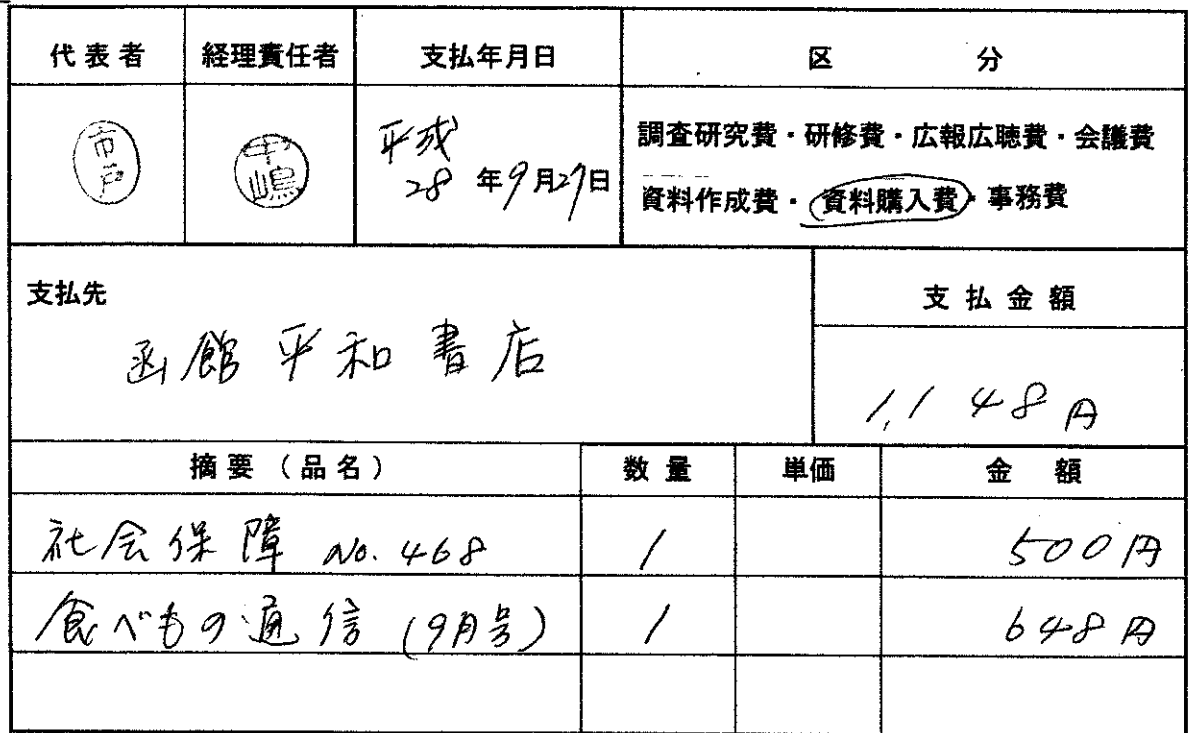 代表者 経理責任者 支払年月日 区 分
市戸 中嶋 平成28年9月27日 調査研究費・研修費・広報広聴費・会議費
資料作成費・資料購入費・事務費
支払先 支払金額
函館平和書店 1,148円
摘要（品名） 数量 単価 金額
社会保障 No.468 1 500円
食べもの通信（9月号） 1 648円